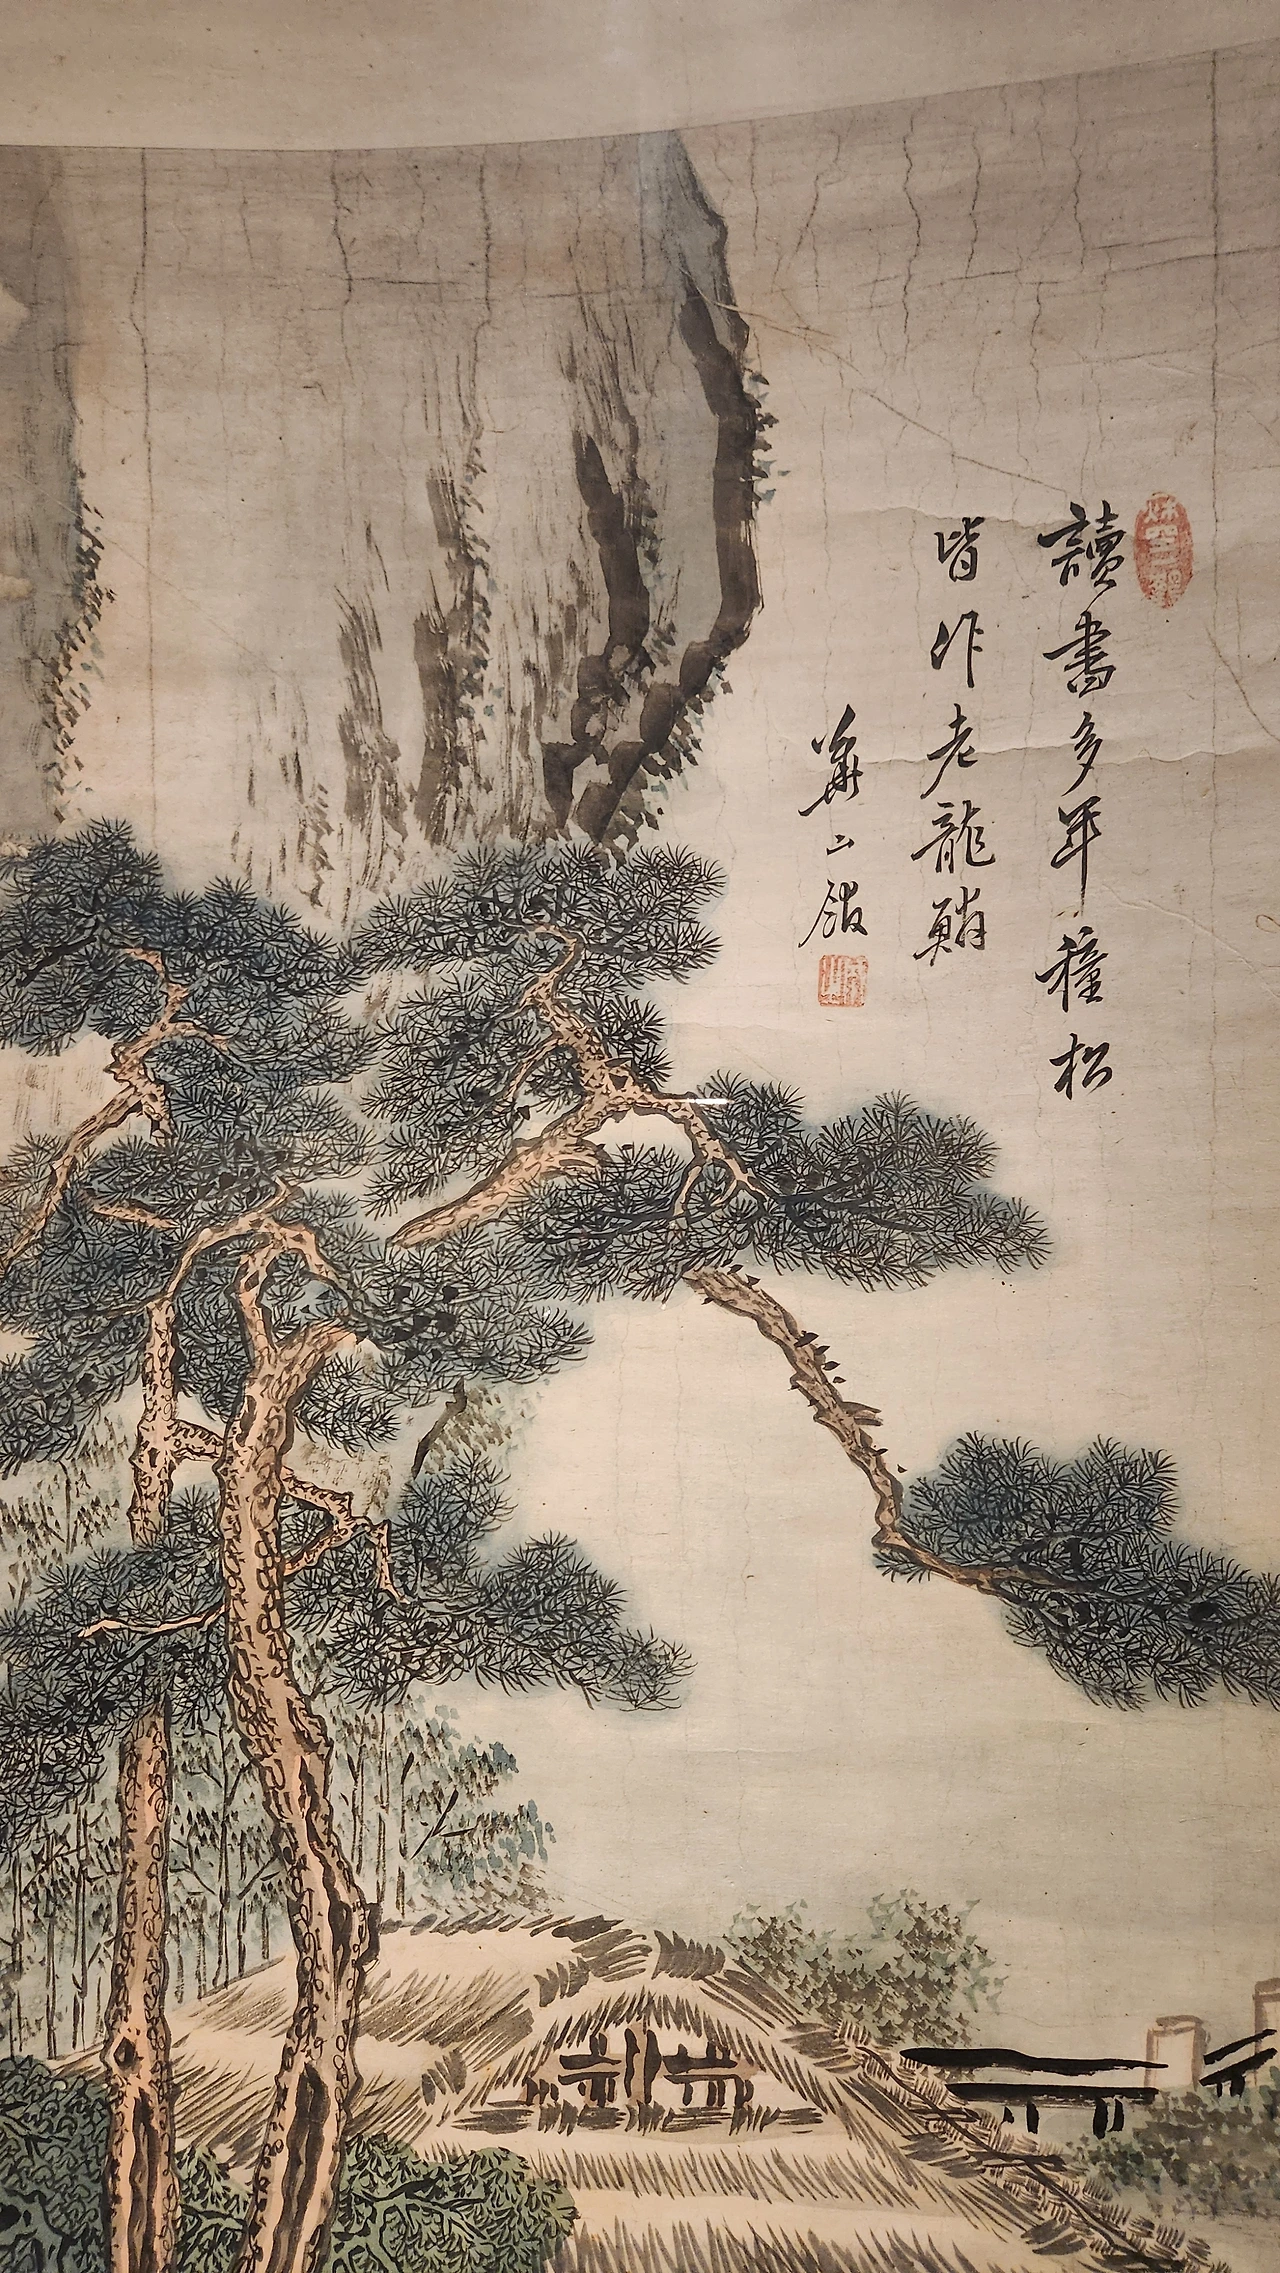 讀書多年種松
皆作老龍鱗
華山